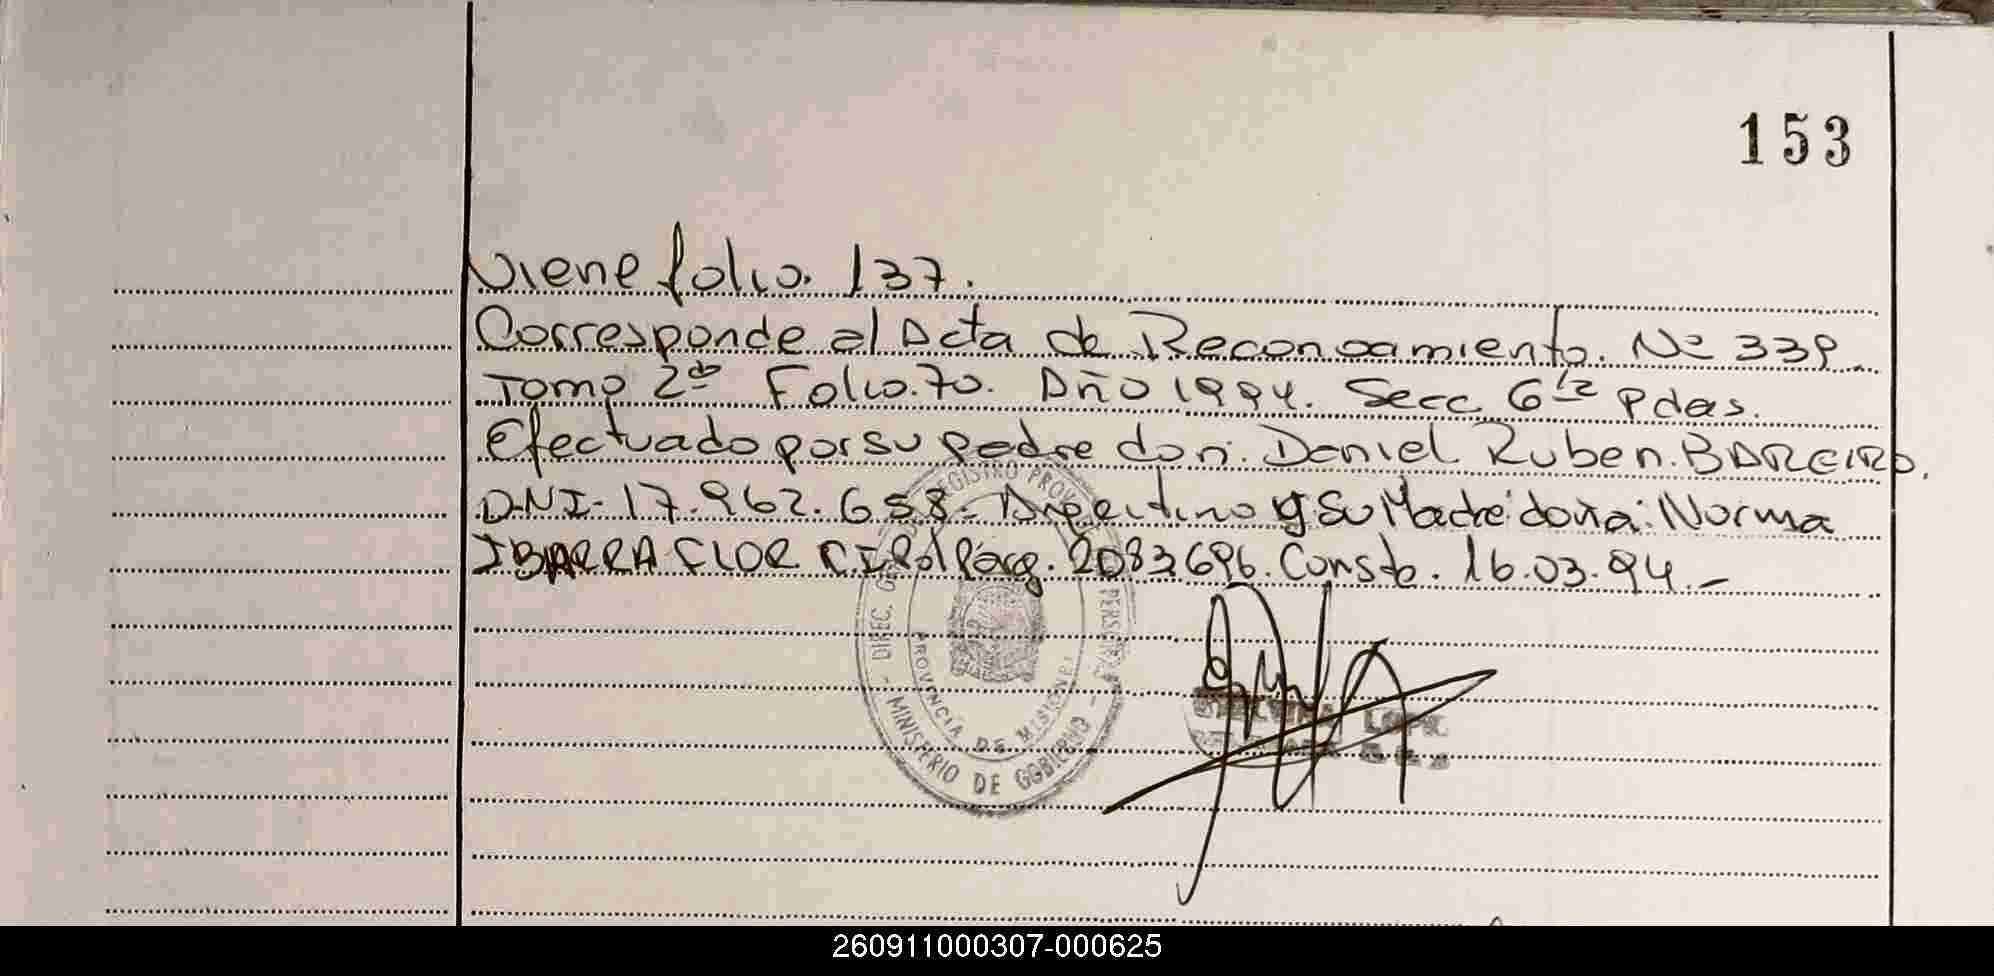 153
Viene folio. 137.
Corresponde al Acta de Reconocamiento. Nº 339.
Tomo 2do Folio. 70. Año 1994. Secc 6ta Pdas.
Efectuado por su padre don: Daniel Ruben. BAREIRO.
D.N.I. 17.962.658 - Argentino y su Madre doña: Norma
IBARRA FLOR C.I. Pol Parg. 2083696. Consto. 16.03.94.-
REGISTRO PROV
PERSONAS
DIREC.
PROVINCIA DE MISIONES
- MINISTERIO DE GOBIERNO -
260911000307-000625